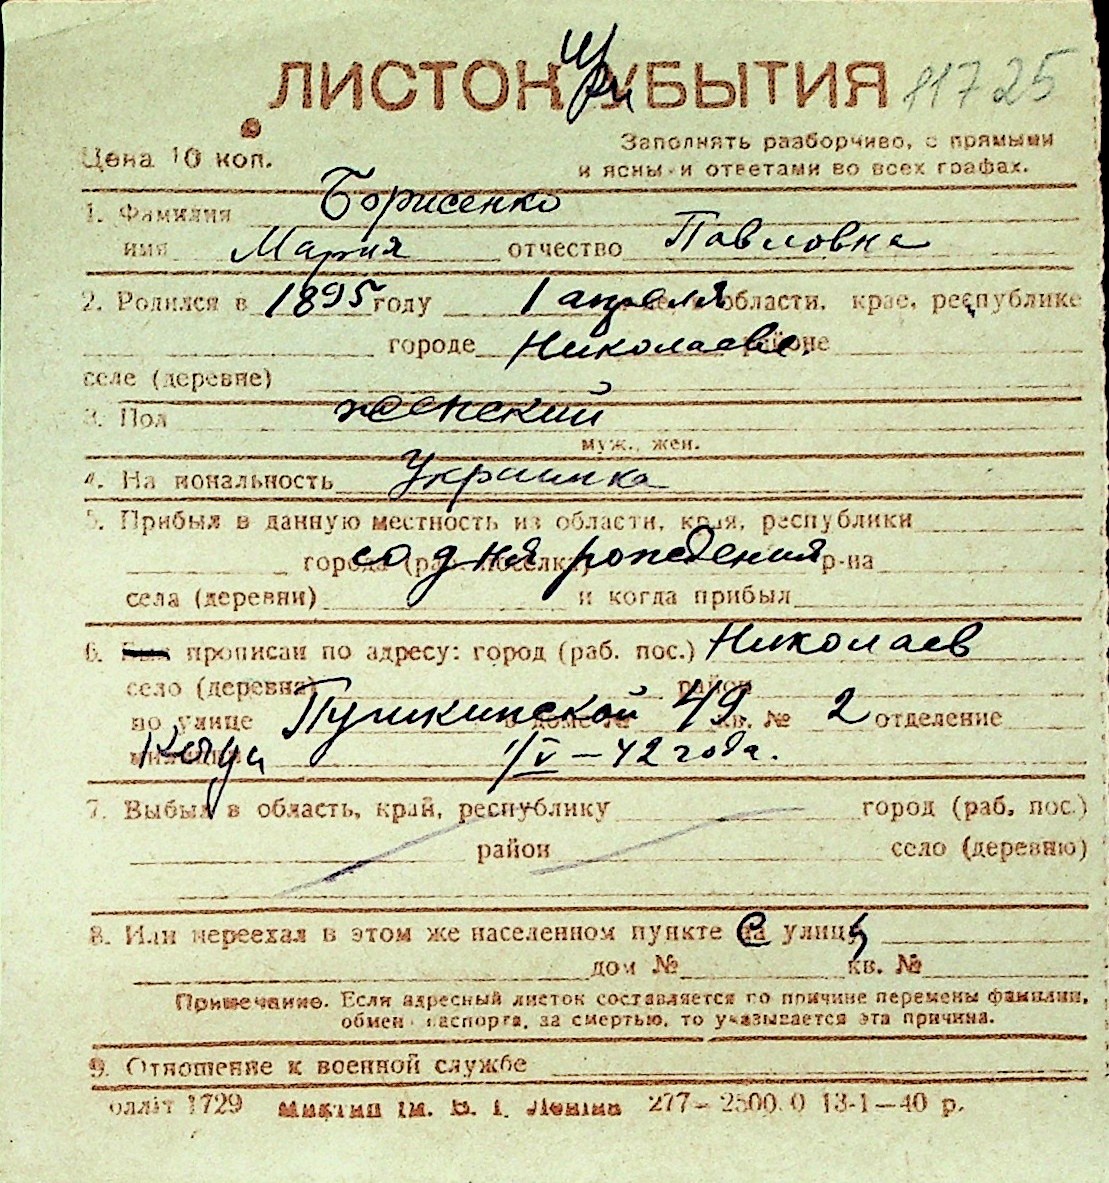 ЛИСТОК УБЫТИЯ При 11725
Цена 10 коп.
Заполнять разборчиво, с прямыми
и ясными ответами во всех графах.
1. Фамилия Борисенко
имя Мария отчество Павловна
2. Родился в 1895 году 1 апреля области, крае, республике
городе Николаеве. районе
селе (деревне)
3. Пол женский
муж., жен.
4. Национальность Украинка
5. Прибыл в данную местность из области, края, республики
города (раб. поселка) со дня рождения р-на
села (деревни) и когда прибыл
6. Был прописан по адресу: город (раб. пос.) Николаев
село (деревня) район
по улице Пушкинской в доме № 49 кв. № 2 отделение
милиции Когда 1/V – 42 года.
7. Выбыл в область, край, республику город (раб. пос.)
район село (деревню)
8. Или переехал в этом же населенном пункте С на улицу
дом № кв. №
Примечание. Если адресный листок составляется по причине перемены фамилии,
обмен паспорта, за смертью, то указывается эта причина.
9. Отношение к военной службе
1729 ім. В. І. Леніна 277–2500.0 13-1–40 р.